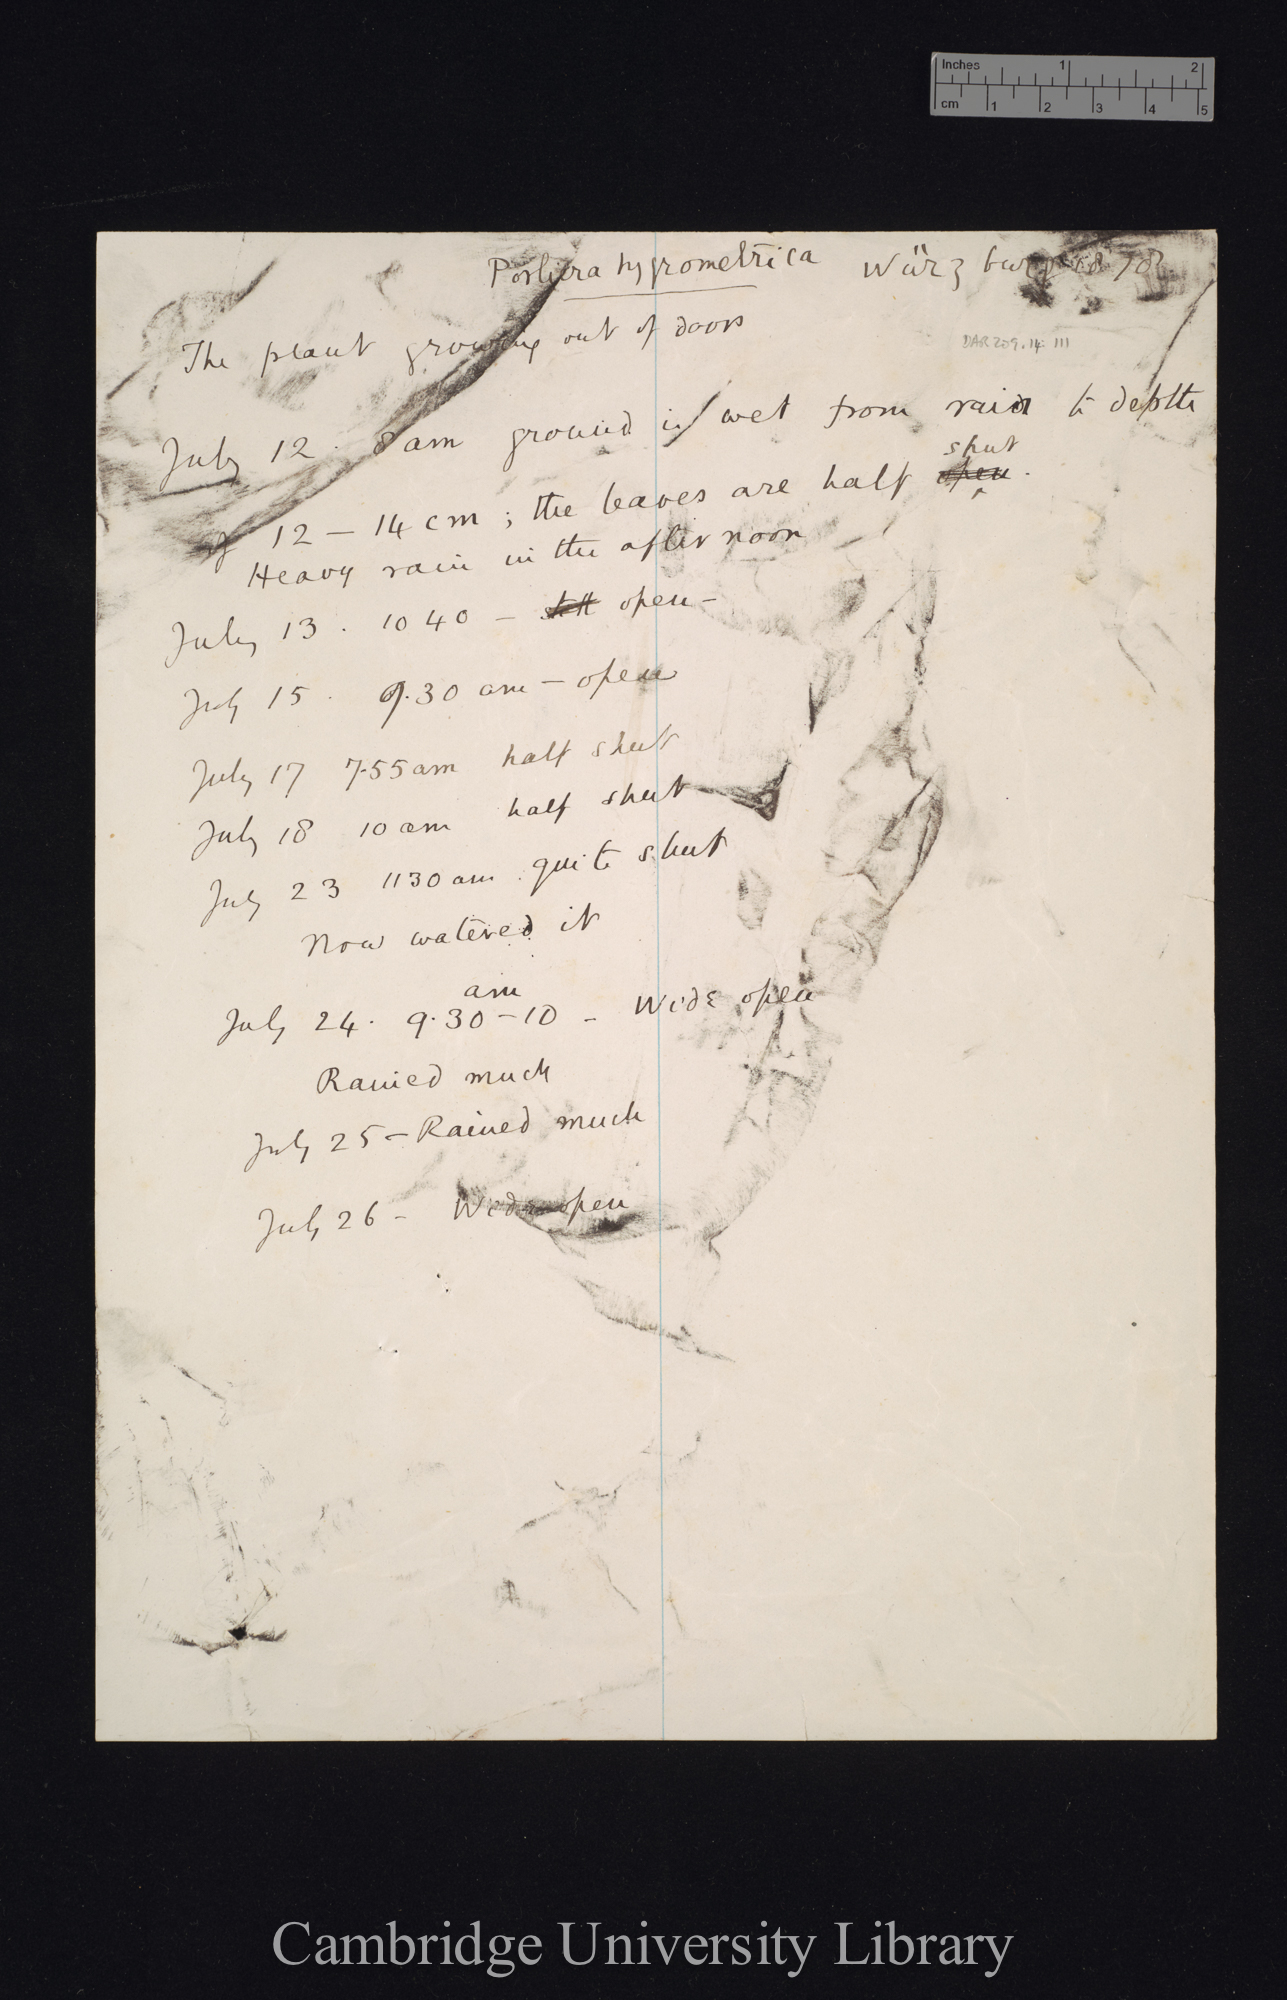 Inches 1 2
cm 1 2 3 4 5
Porliera hygrometrica Würzburg 1878
The plant growing out of doors
DAR 209.14: 111
July 12. 8 am ground is wet from rain to depth
shut
of 12 – 14 cm ; the leaves are half open.
Heavy rain in the afternoon
July 13. 10 40 – open –
July 15. 9.30 am – open
July 17 7.55 am half shut
July 18 10 am half shut
July 23 11 30 am quite shut
Now watered it
am
July 24. 9.30 – 10 – Wide open
Rained much
July 25 – Rained much
July 26 – Wide open
Cambridge University Library